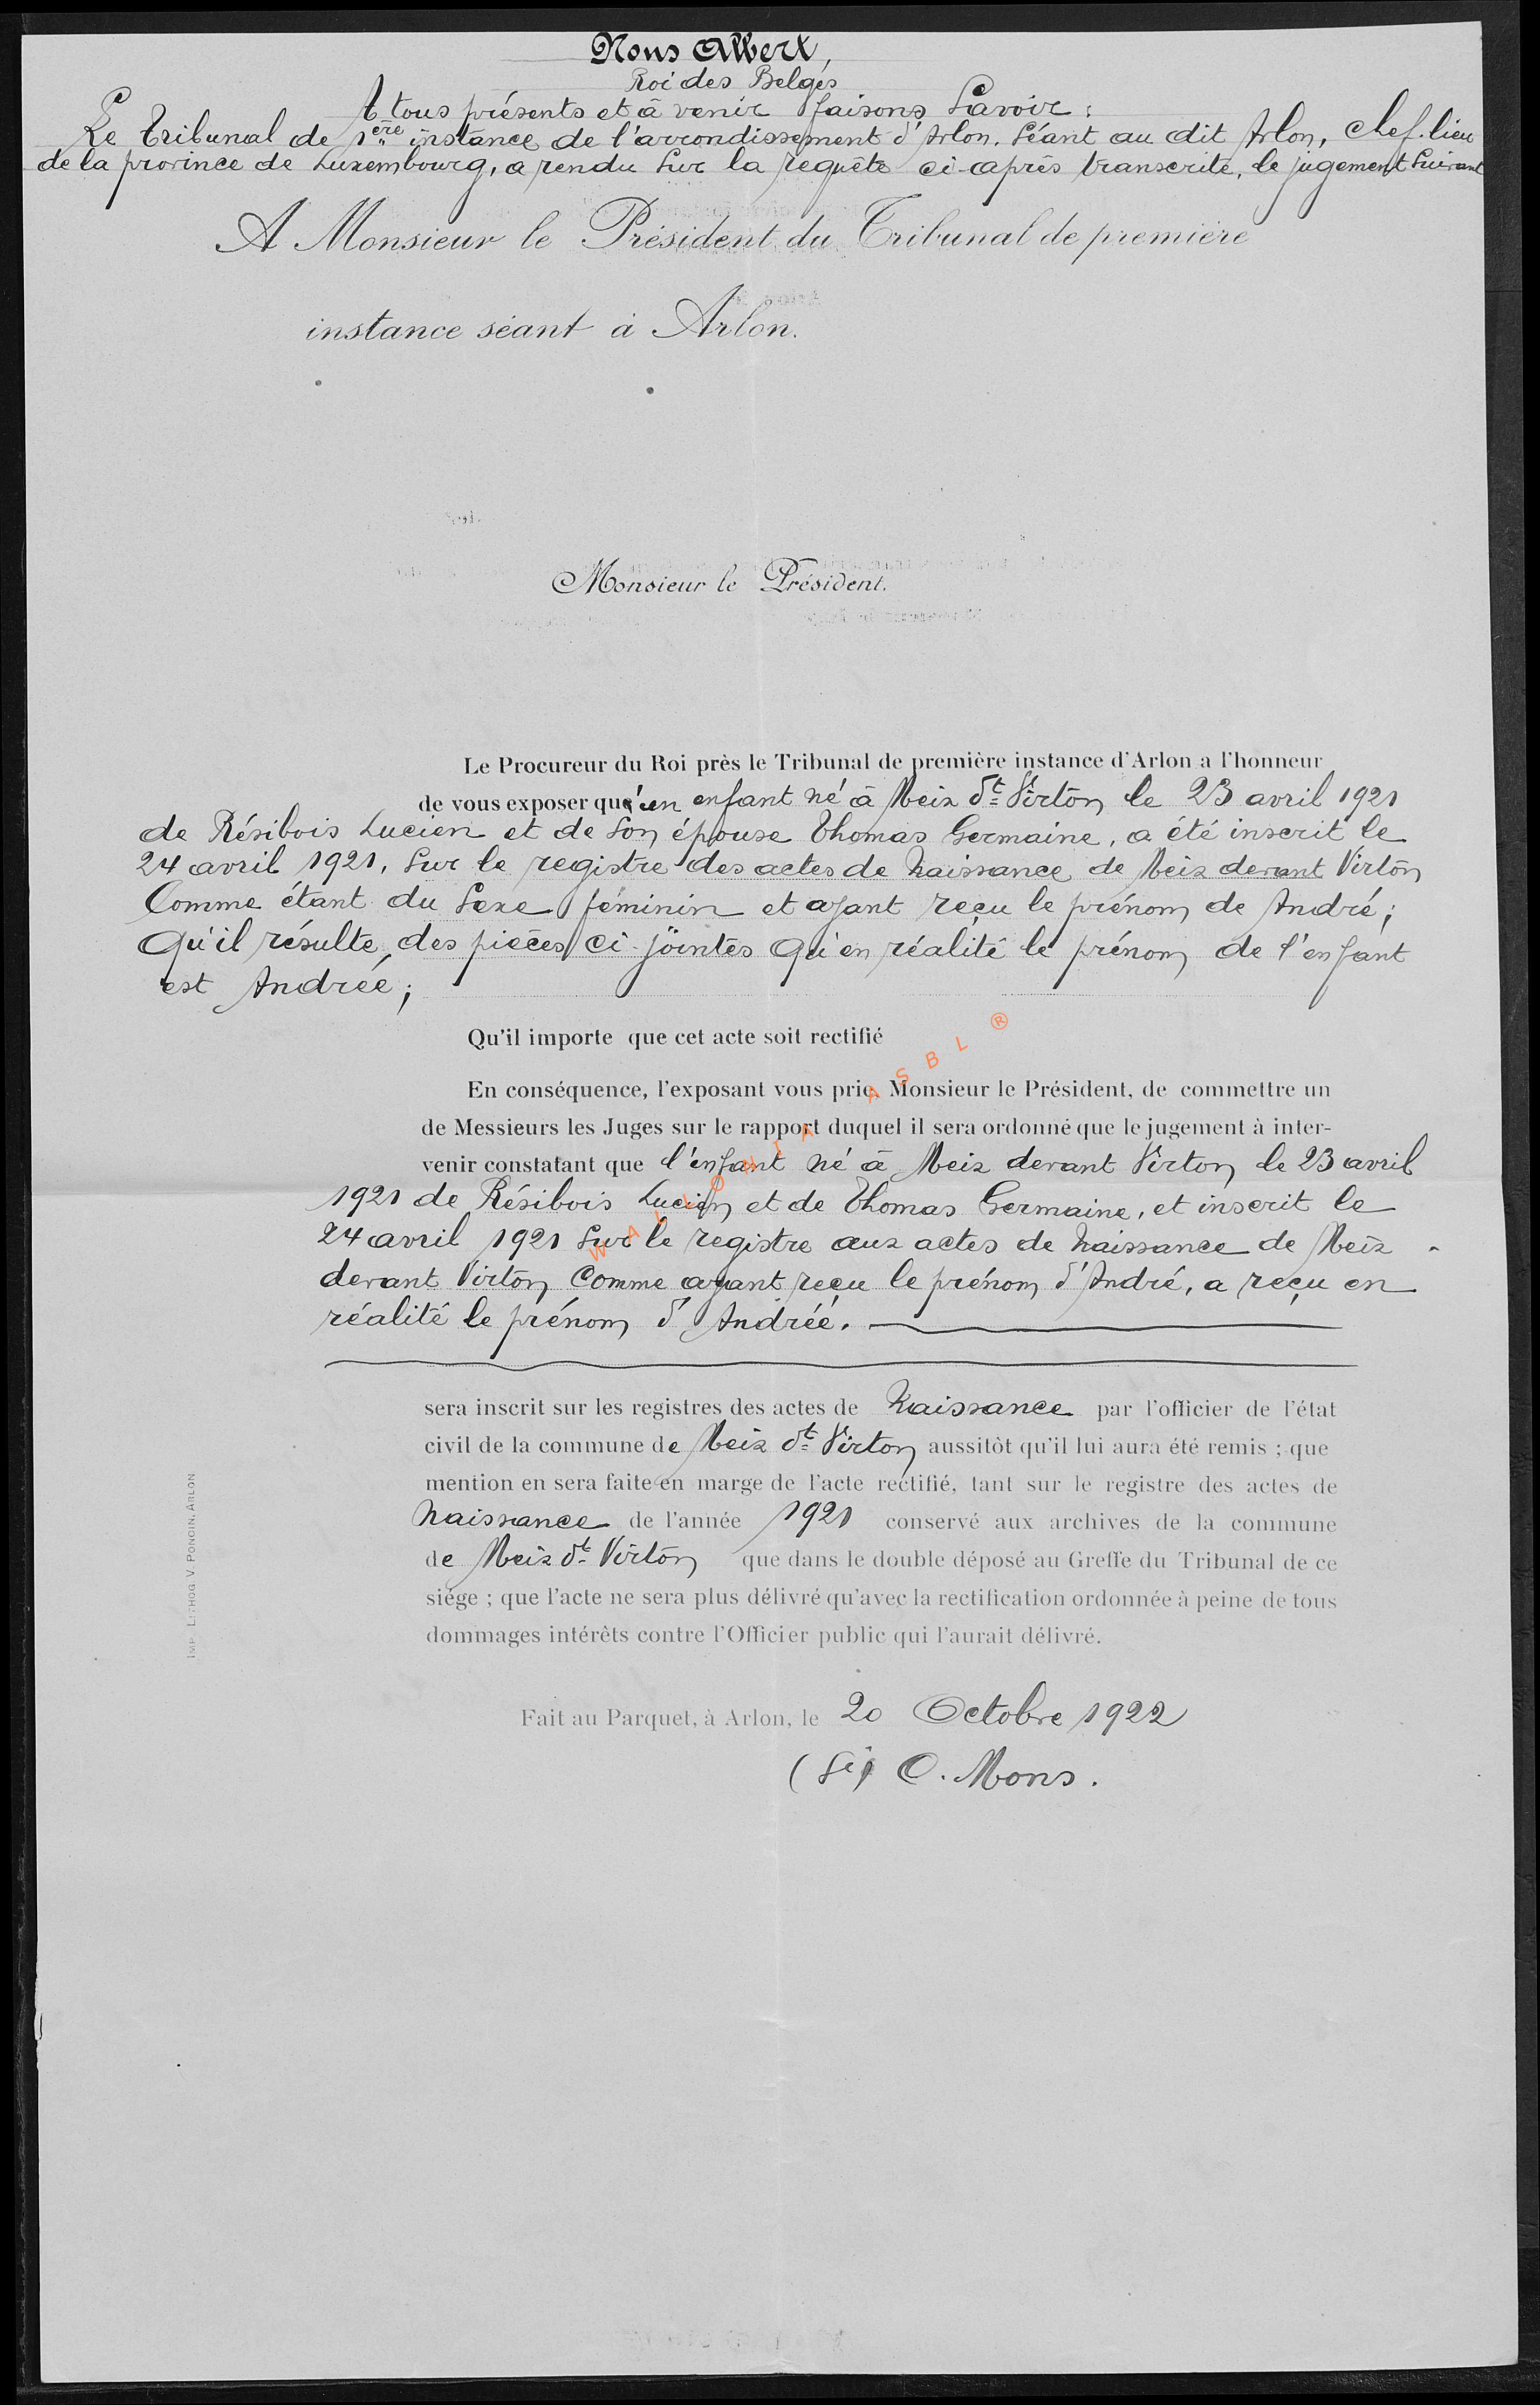 Nous Albert,
Roi des Belges
A tous présents et à venir faisons Savoir :
Le Tribunal de 1ère instance de l'arrondissement d'Arlon, Séant au dit Arlon, chef-lieu
de la province de Luxembourg, a rendu Sur la requête ci-après transcrite, le jugement Suivant
A Monsieur le Président du Tribunal de première
instance séant à Arlon.
Monsieur le Président.
Le Procureur du Roi près le Tribunal de première instance d'Arlon a l'honneur
de vous exposer qu'un enfant né à Meix dt Virton le 23 avril 1921
de Résibois Lucien et de Son épouse Thomas Germaine, a été inscrit le
24 avril 1921, Sur le registre des actes de Naissance de Meix devant Virton
Comme étant du Sexe féminin et ayant reçu le prénom de André ;
Qu'il résulte des pièces ci-jointes qu'en réalité le prénom de l'enfant
est Andrée ;
Qu'il importe que cet acte soit rectifié
En conséquence, l'exposant vous prie, Monsieur le Président, de commettre un
de Messieurs les Juges sur le rapport duquel il sera ordonné que le jugement à inter-
venir constatant que l'enfant né à Meix devant Virton le 23 avril
1921 de Résibois Lucien et de Thomas Germaine, et inscrit le
24 avril 1921 Sur le registre aux actes de Naissance de Meix -
devant Virton Comme ayant reçu le prénom d'André, a reçu en
réalité le prénom d'Andréé.
sera inscrit sur les registres des actes de Naissance par l'officier de l'état
civil de la commune de Meix dt Virton aussitôt qu'il lui aura été remis ; que
mention en sera faite en marge de l'acte rectifié, tant sur le registre des actes de
Naissance de l'année 1921 conservé aux archives de la commune
de Meix dt Virton que dans le double déposé au Greffe du Tribunal de ce
siége ; que l'acte ne sera plus délivré qu'avec la rectification ordonnée à peine de tous
dommages intérêts contre l'Officier public qui l'aurait délivré.
Fait au Parquet, à Arlon, le 20 Octobre 1922
(Sé) C. Mons.
IMP. LITHOG V. PONCIN, ARLON
WALLONIA ASBL ®